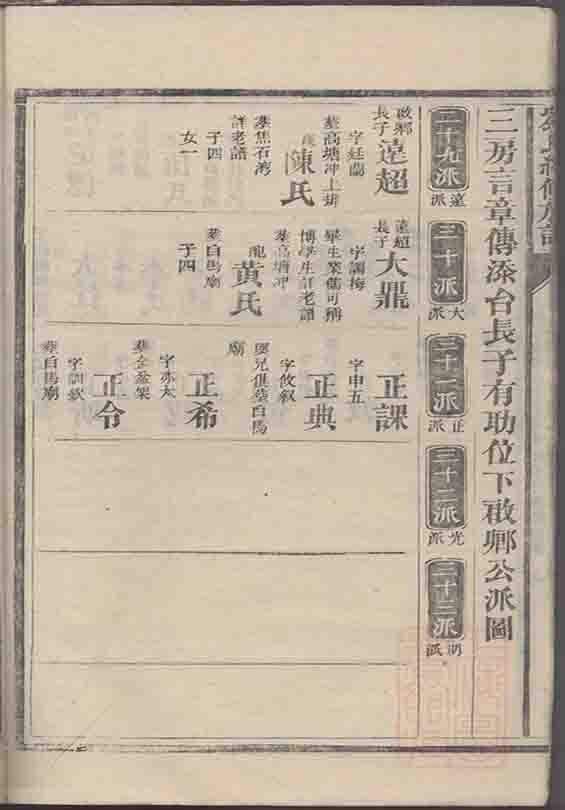 三房言章傳添台長子有功位下啟鄉公派圖
二十九派
遠派
三十派
大派
三十一派
正派
三十二派
光派
三十三派
明派
啟鄉
長子
遠超
字廷蘭
葬高塘冲上排
陳氏
葬焦石灣
詳老譜
子四
女一
遠超
長子
大鼎
字調梅
畢生業儒可稱
博學生訂老譜
葬高塘冲
配
黃氏
葬白馬廟
子四
正課
字申五
正典
字攸叙
與兄俱葬白馬
廟
正希
字亦太
葬金盆架
正令
字調欽
葬白馬廟